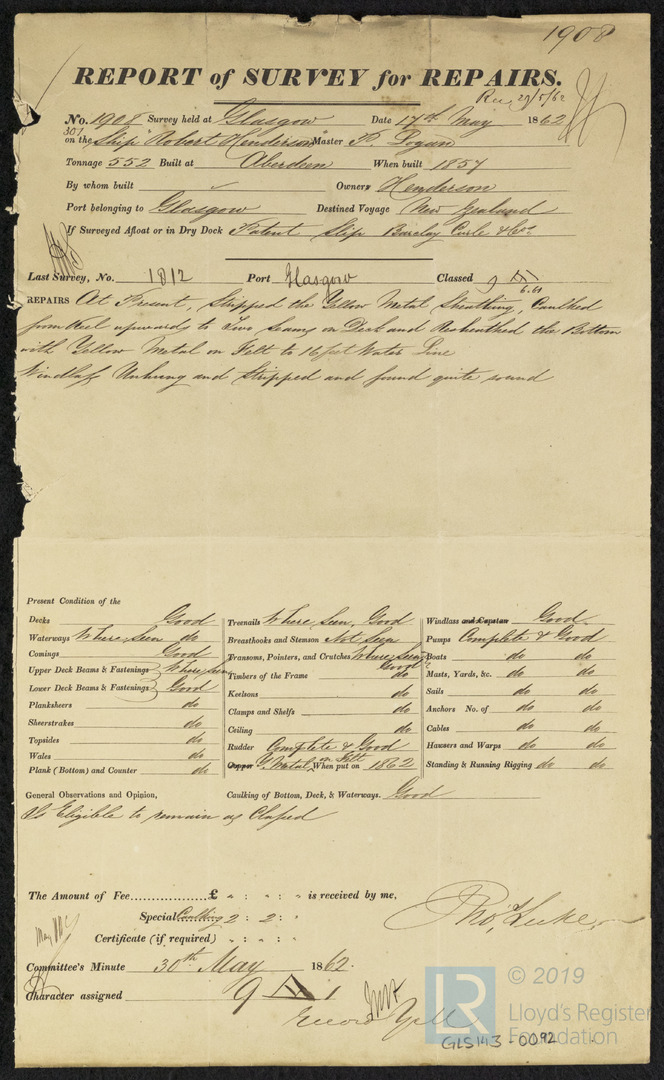 1908
REPORT of SURVEY for REPAIRS.
Rec 29/5/62
No. 1908 Survey held at Glasgow Date 17th May 1862
301
on the Ship "Robert Henderson" Master P. Logan
Tonnage 552 Built at Aberdeen When built 1857
By whom built Owners Henderson
Port belonging to Glasgow Destined Voyage New Zealand
If Surveyed Afloat or in Dry Dock Patent Slip Barclay Curle & Co.
Last Survey, No. 1812 Port Glasgow Classed 9 A 1
6.61
REPAIRS At Present, Stripped the Yellow Metal Sheathing, Caulked
from Keel upwards to Two Seams on Deck and Resheathed the Bottom
with Yellow Metal on Felt to 16 feet Water Line
Windlass Unhung and Stripped and found quite sound
Present Condition of the
Decks Good
Waterways Where Seen do
Comings Good
Upper Deck Beams & Fastenings Where Seen
Lower Deck Beams & Fastenings Good
Planksheers do
Sheerstrakes do
Topsides do
Wales do
Plank (Bottom) and Counter do
Treenails Where Seen, Good
Breasthooks and Stemson Not Seen
Transoms, Pointers, and Crutches Where Seen
Good
Timbers of the Frame do
Keelsons do
Clamps and Shelfs do
Ceiling do
Rudder Complete & Good
Copper Y. Metal on Felt When put on 1862
Windlass and Capstan Good
Pumps Complete & Good
Boats do do
Masts, Yards, &c. do do
Sails do do
Anchors No. of do do
Cables do do
Hausers and Warps do do
Standing & Running Rigging do do
General Observations and Opinion, Caulking of Bottom, Deck, & Waterways. Good
Is Eligible to remain as Classed
The Amount of Fee £ " : " : " is received by me,
Special Caulking 2 : 2 : "
Certificate (if required) " : " : "
Thos. Luke
Committee's Minute 30th May 1862.
Character assigned 9 A 1
© 2019
Lloyd's Register
Foundation
GLS143-0092